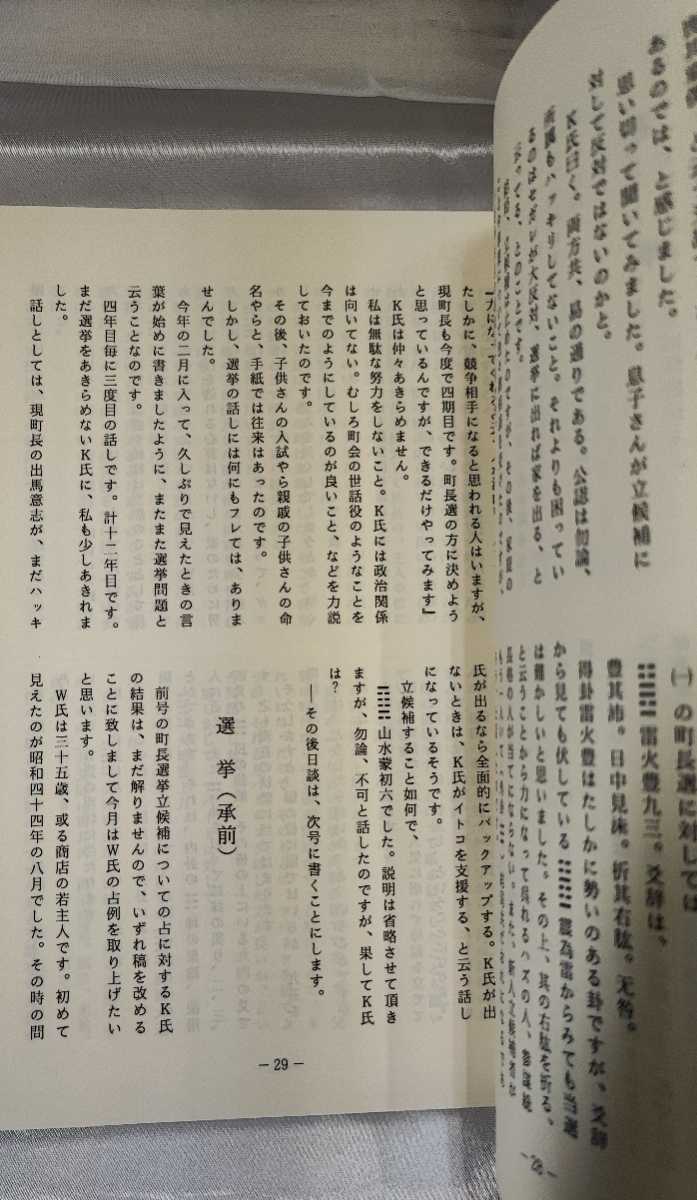 あるのでは、と感じました。
思い切って聞いてみました。息子さんが立候補に
対して反対ではないのかと。
K氏曰く。両方共、易の通りである。公認は勿論、
もハッキリしてないこと。それよりも困ってい
るのはセガレが大反対、選挙に出れば家を出る、と
云ってる、とのことです。
㈠の町長選に対しては
䷶ 雷火豊九三。爻辞は、
豊其沛。日中見沫。折其右肱。无咎。
得卦雷火豊はたしかに勢いのある卦ですが、爻辞
から見ても伏している 震為雷からみても当選
は難かしいと思いました。その上、其の右肱を折る、
と云うことから力になって呉れるハズの人、
の人が当てにならない。また、新人立候補者が
－28－
たしかに、競争相手になると思われる人はいますが、
現町長も今度で四期目です。町長選の方に決めよう
と思っているんですが、できるだけやってみます』
K氏は仲々あきらめません。
私は無駄な努力をしないこと。K氏には政治関係
は向いてない。むしろ町会の世話役のようなことを
今までのようにしているのが良いこと、などを力説
しておいたのです。
その後、子供さんの入試やら親戚の子供さんの命
名やらと、手紙では往来はあったのです。
しかし、選挙の話しには何にもフレては、ありま
せんでした。
今年の二月に入って、久しぶりで見えたときの言
葉が始めに書きましたように、またまた選挙問題と
云うことなのです。
四年目毎に三度目の話しです。計十二年目です。
まだ選挙をあきらめないK氏に、私も少しあきれま
した。
話しとしては、現町長の出馬意志が、まだハッキ
氏が出るなら全面的にバックアップする。K氏が出
ないときは、K氏がイトコを支援する、と云う話し
になっているそうです。
立候補すること如何で、
䷃ 山水蒙初六でした。説明は省略させて頂き
ますが、勿論、不可と話したのですが、果してK氏
は？
――その後日談は、次号に書くことにします。
選挙（承前）
前号の町長選挙立候補についての占に対するK氏
の結果は、まだ解りませんので、いずれ稿を改める
ことに致しまして今月はW氏の占例を取り上げたい
と思います。
W氏は三十五歳、或る商店の若主人です。初めて
見えたのが昭和四十四年の八月でした。その時の問
－29－